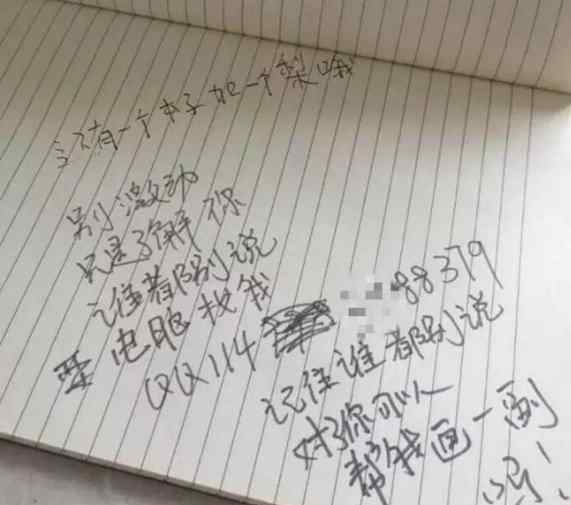 还有一个本子和一个梨哦
别激动
只是了解你
谁者都别说
要电脑找我
QQ114 88379
记住谁都别说
对了你可以
帮我画一副
吗!